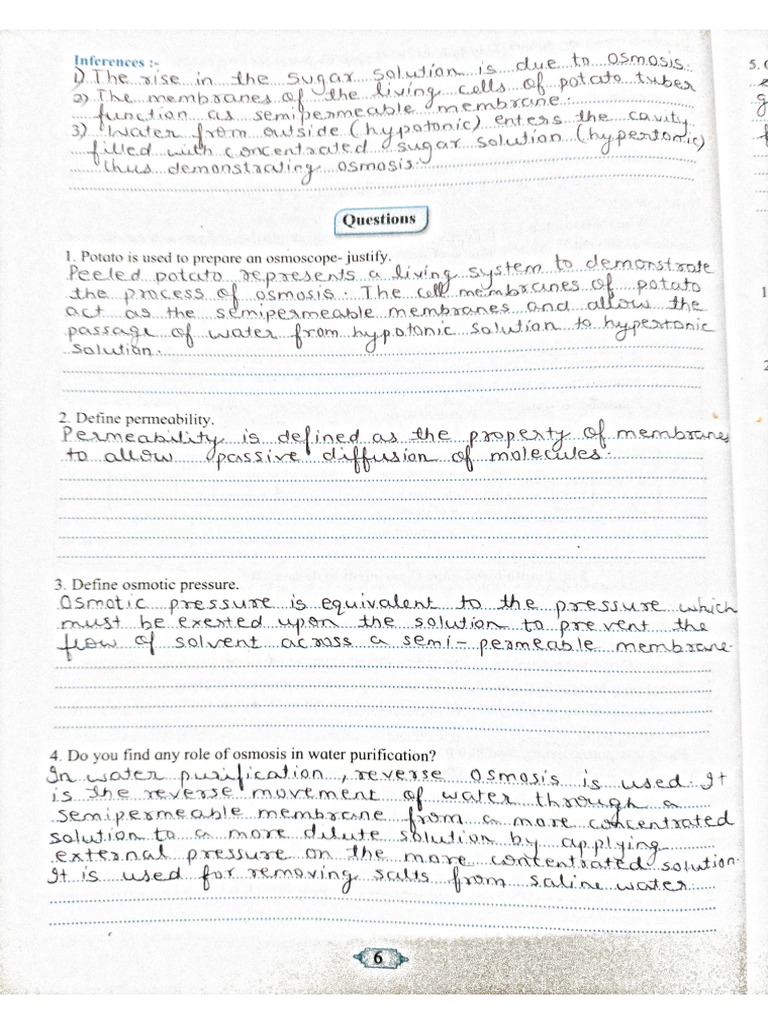 Inferences :-
1) The rise in the sugar solution is due to osmosis.
2) The membranes of the living cells of potato tuber
function as semipermeable membrane.
3) Water from outside (hypotonic) enters the cavity
filled with concentrated sugar solution (hypertonic)
thus demonstrating osmosis.
Questions
1. Potato is used to prepare an osmoscope- justify.
Peeled potato represents a living system to demonstrate
the process of osmosis. The cell membranes of potato
act as the semipermeable membranes and allow the
passage of water from hypotonic solution to hypertonic
solution.
2. Define permeability.
Permeability is defined as the property of membranes
to allow passive diffusion of molecules.
3. Define osmotic pressure.
Osmotic pressure is equivalent to the pressure which
must be exerted upon the solution to prevent the
flow of solvent across a semi-permeable membrane.
4. Do you find any role of osmosis in water purification?
In water purification, reverse osmosis is used. It
is the reverse movement of water through a
semipermeable membrane from a more concentrated
solution to a more dilute solution by applying
external pressure on the more concentrated solution.
It is used for removing salts from saline water.
6
5.